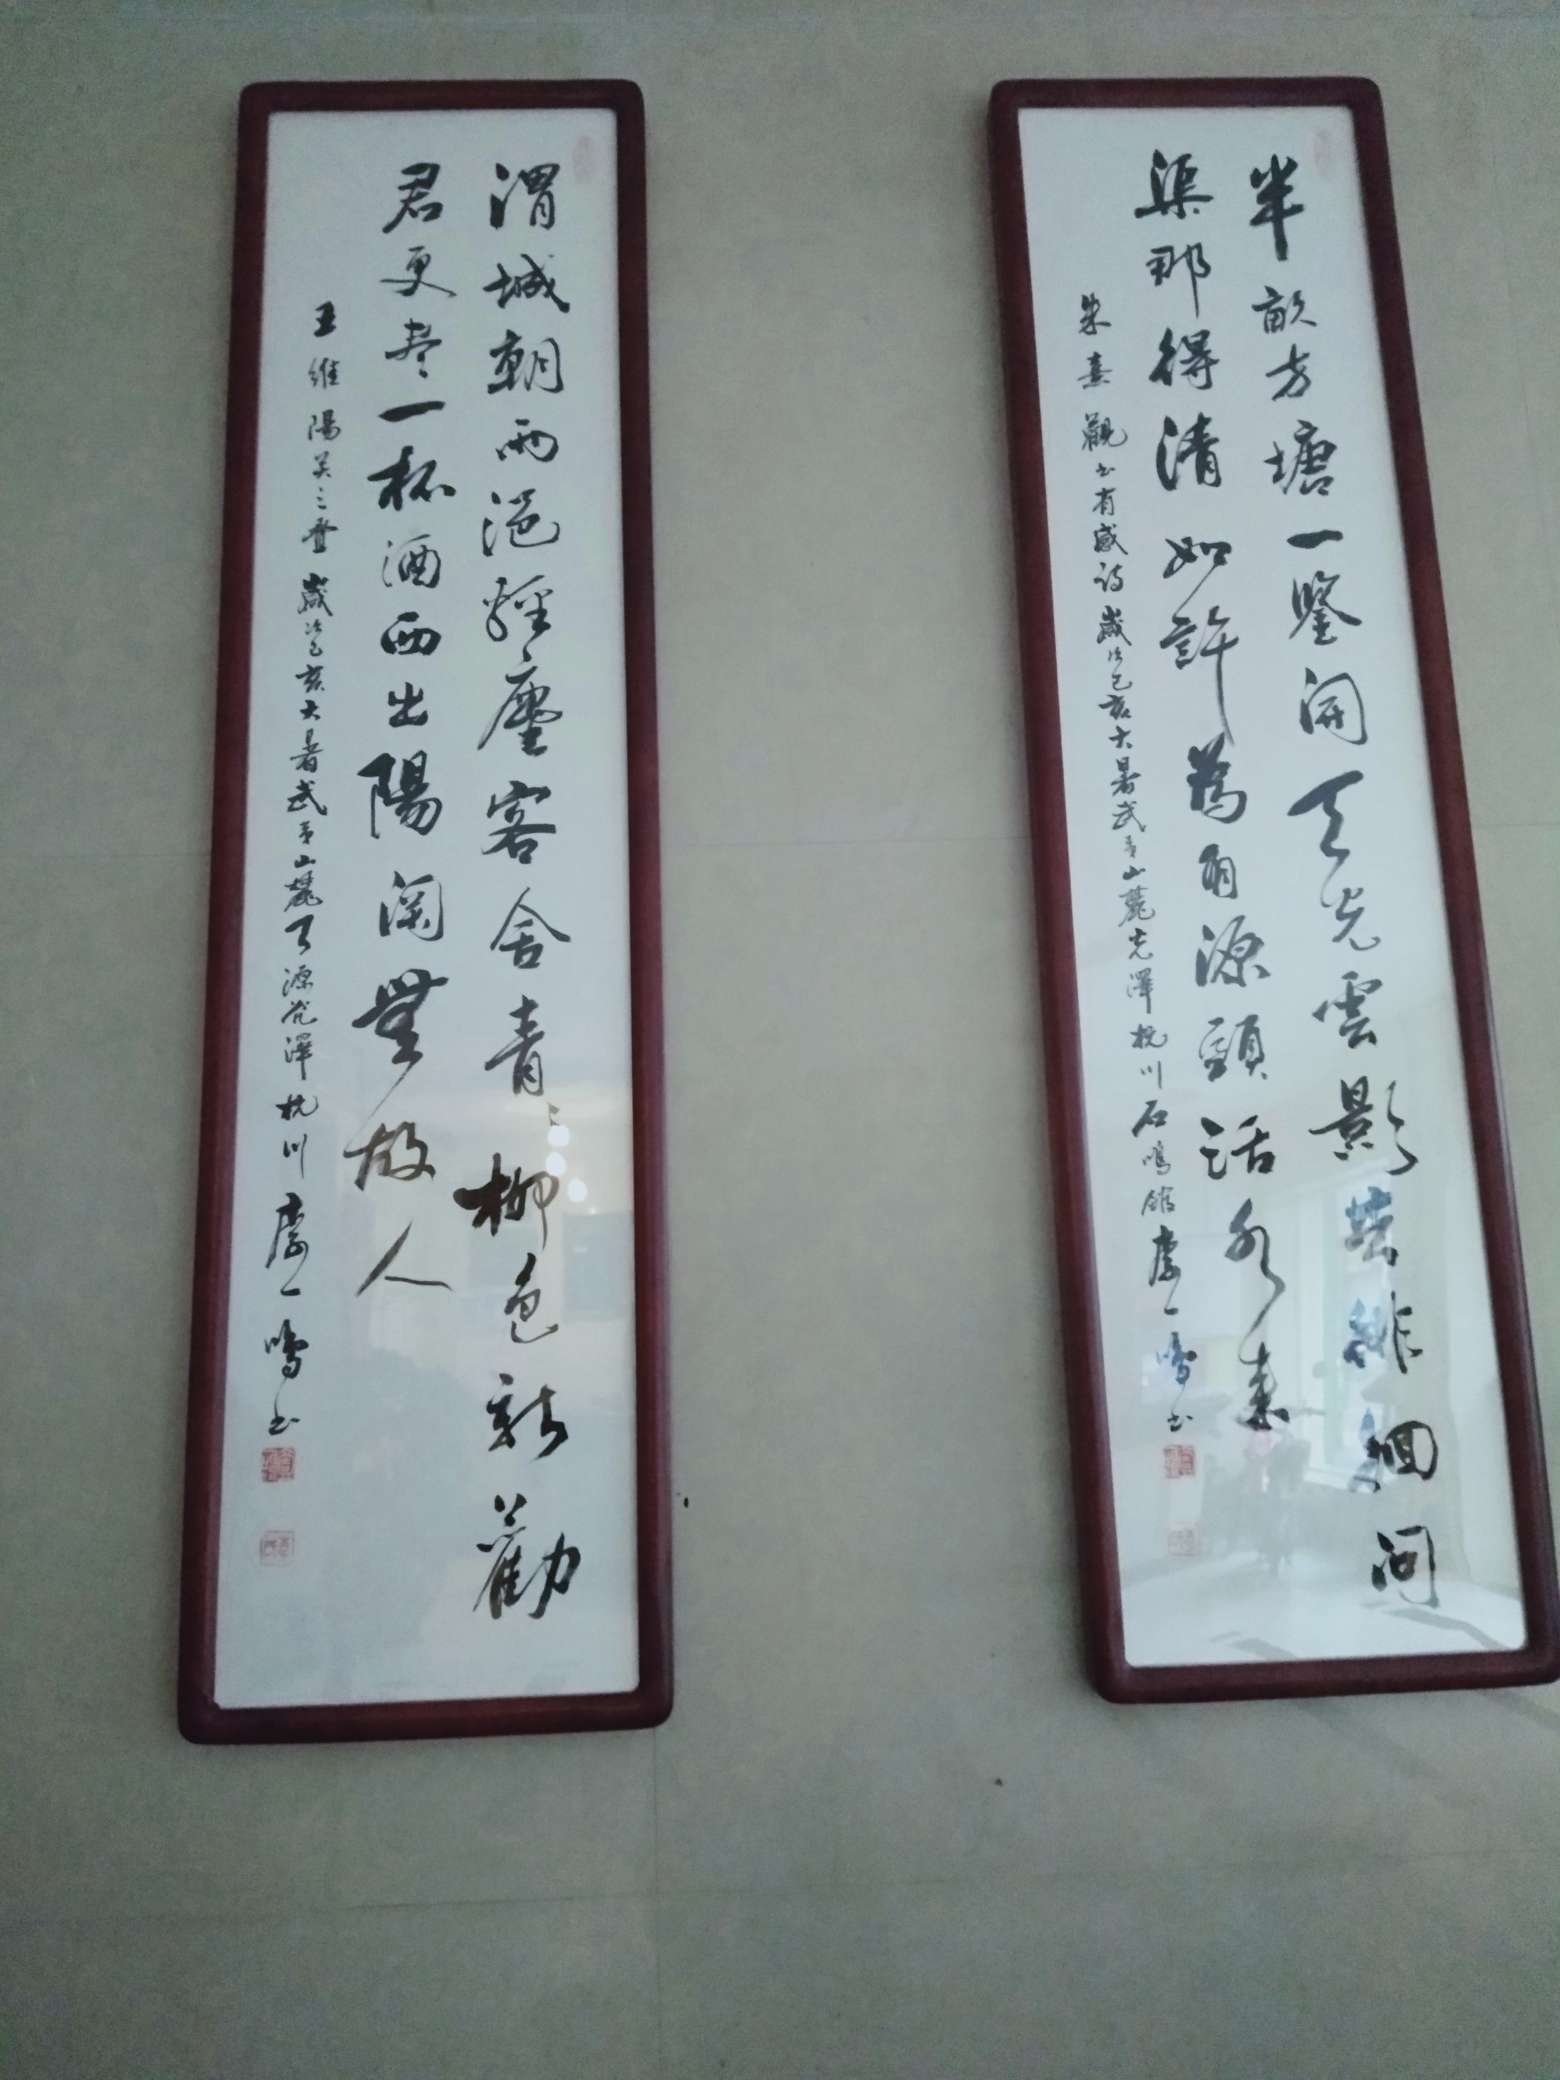 半畝方塘一鑒開天光雲影共徘徊问
渠那得清如許為有源頭活水來
朱熹觀书有感诗歲次己亥大暑武夷山麓光澤杭川石鳴館李一鳴书
渭城朝雨浥輕塵客舍青〻柳色新勸
君更盡一杯酒西出陽関無故人
王維陽关三叠歲次己亥大暑武夷山麓 源光澤杭川李一鳴书